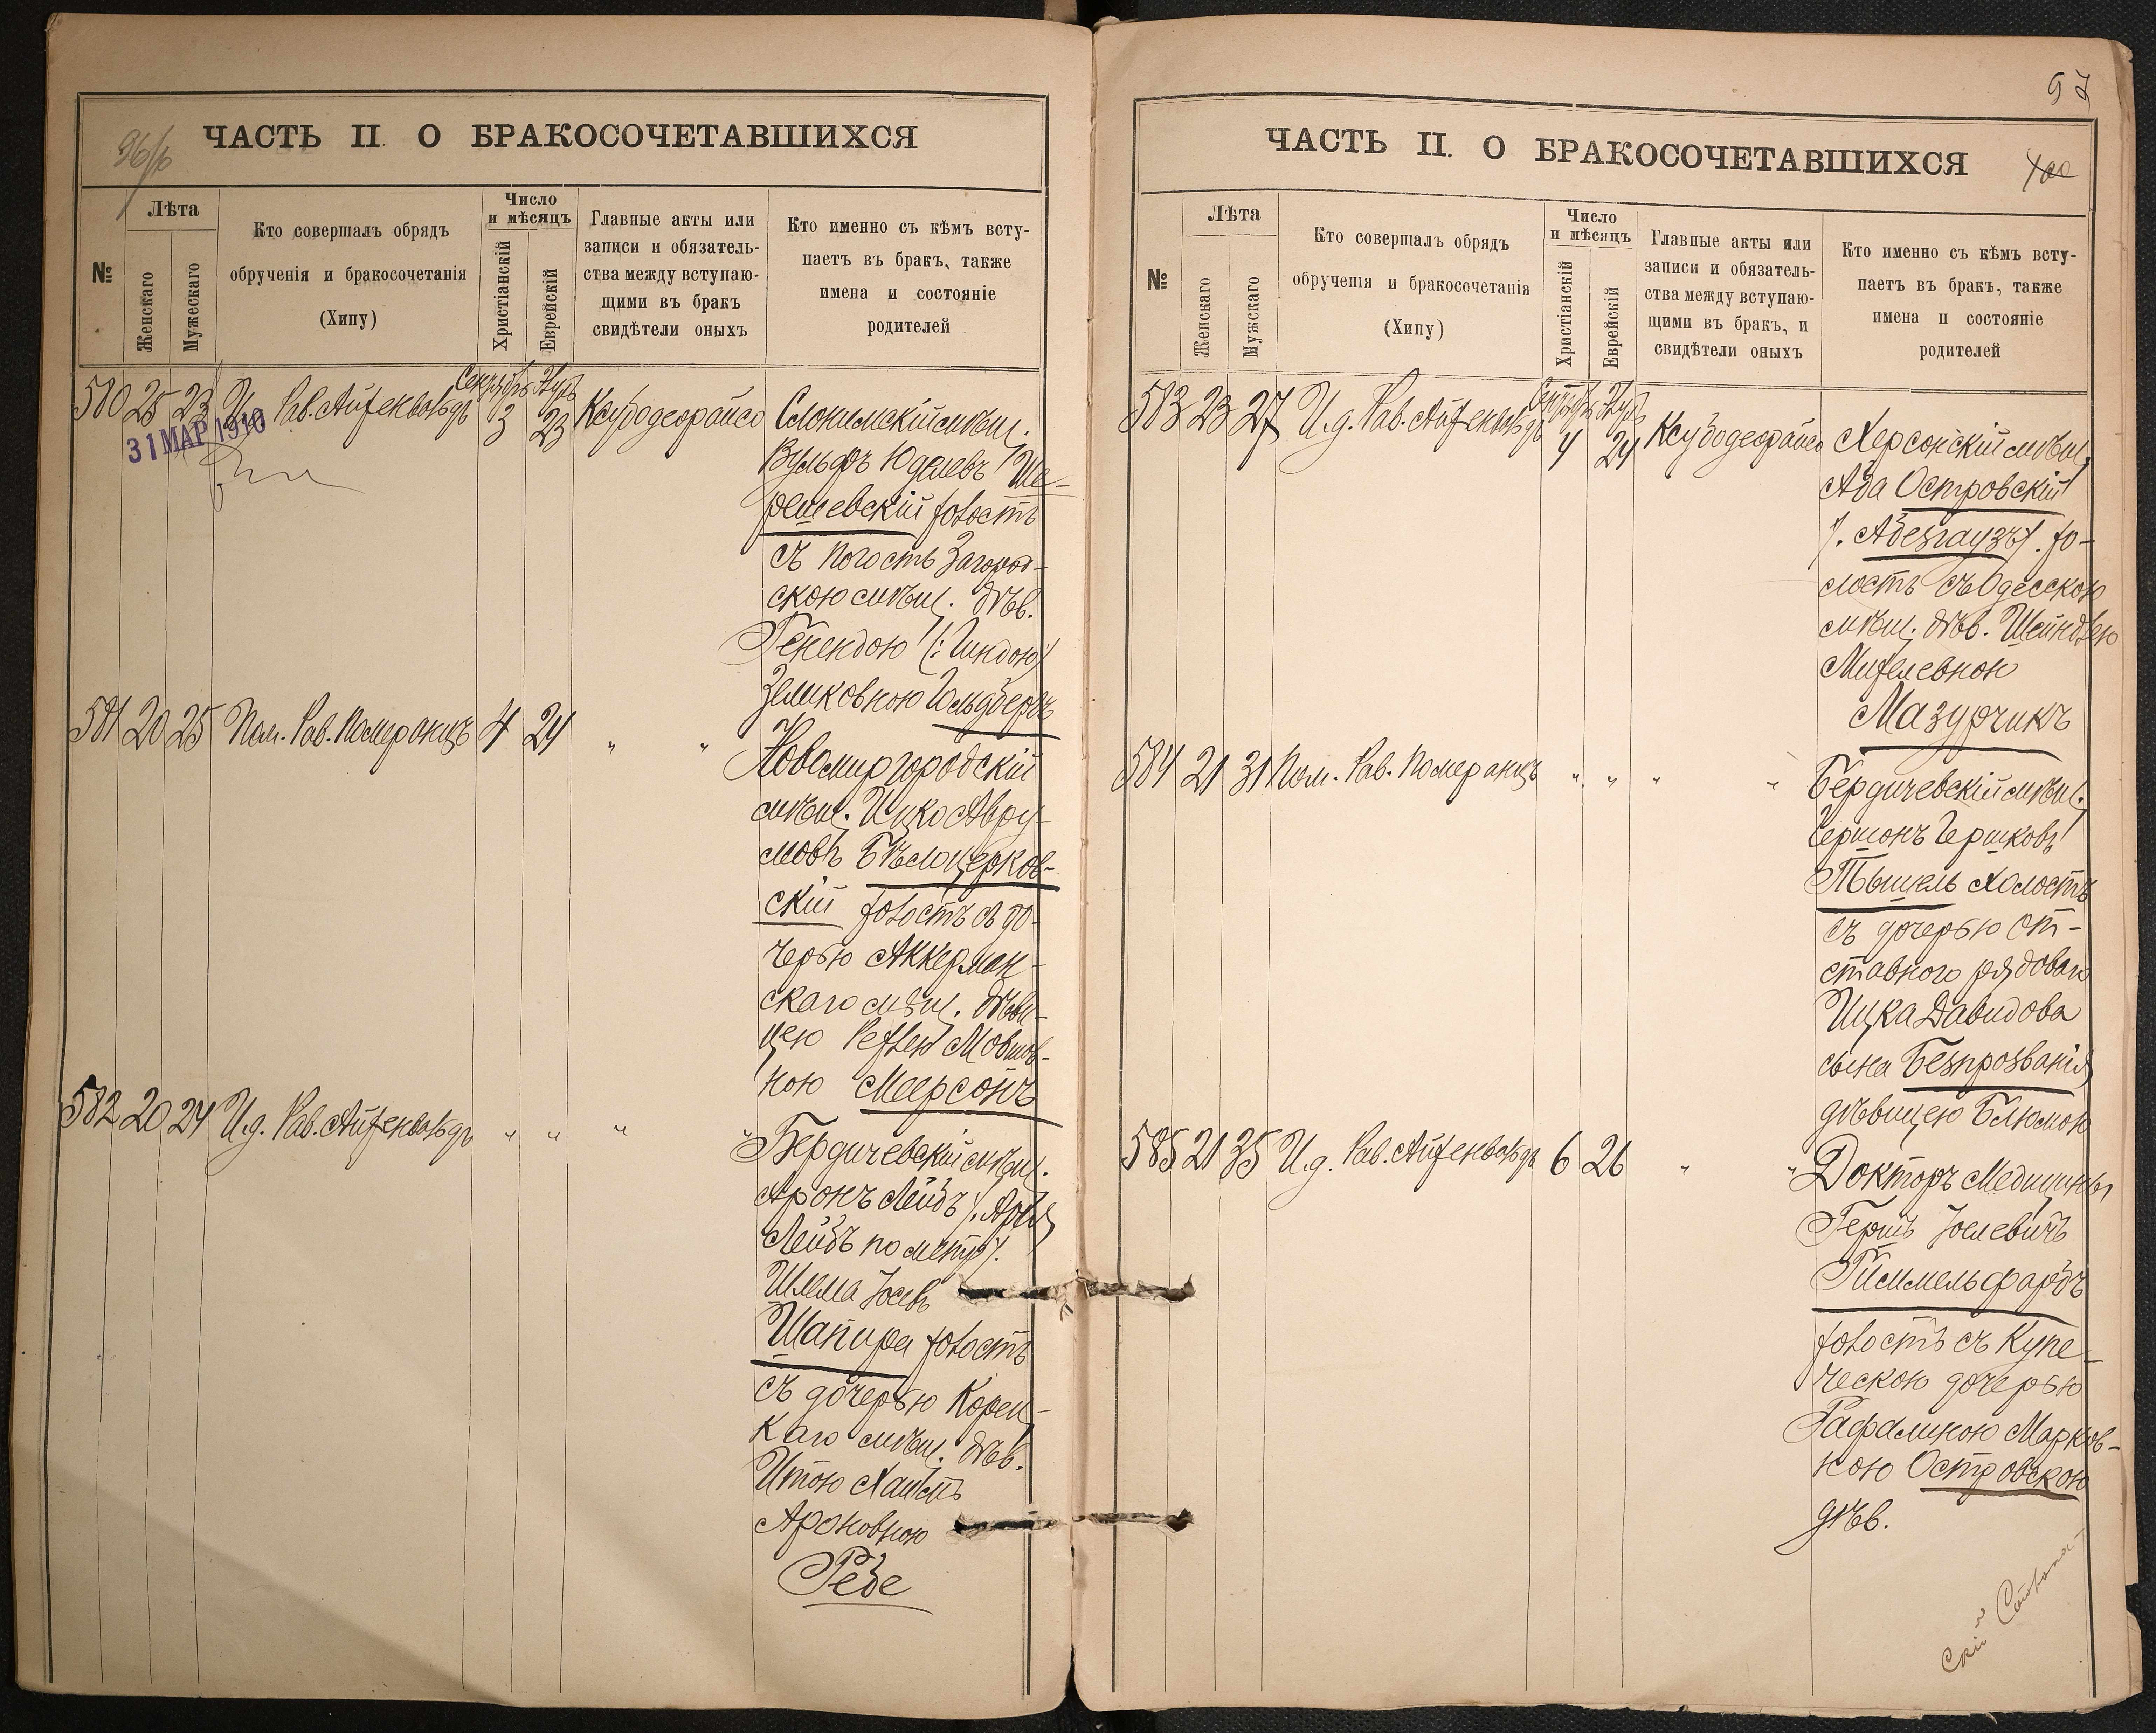 96/6
ЧАСТЬ II. О БРАКОСОЧЕТАВШИХСЯ
№
Лѣта
Женскаго
Мужескаго
Кто совершалъ обрядъ
обрученія и бракосочетанія
(Хипу)
Число
и мѣсяцъ
Христіанскій
Еврейскій
Главные акты или
записи и обязатель-
ства между вступаю-
щими въ бракъ
свидѣтели оныхъ
Кто именно съ кѣмъ всту-
паетъ въ бракъ, также
имена и состояніе
родителей
580 25 23 Рав. Айзенвальдъ Сентябрь 3 23
31 МАР 1910
Слонимскій мѣщ.
Вульфъ Юделевъ Ше-
решевскій холостъ
съ Погостъ Загород-
скою мѣщ. дѣв.
Генендою (: Гиндою)
Зеликовною Гольдбергъ
581 20 25 Пом. Рав. Померанцъ 4 24 " "
Новомиргородскій
мѣщ. Ицко Авру-
мовъ Бѣлоцерков-
скій холостъ съ до-
черью Аккерман-
скаго мѣщ. дѣви-
цею Рейзею Мовшов-
ною Меерсонъ
582 20 24 И.д. Рав. Айзенвальдъ " " " "
Бердичевскій мѣщ.
Аронъ Лейбъ (: Арія
Лейбъ по метр.)
Шлема Іосевъ
Шапира холостъ
съ дочерью Корец-
каго мѣщ. дѣв.
Итою Хаимъ
Ароновною
Ребе
97
ЧАСТЬ II. О БРАКОСОЧЕТАВШИХСЯ
100
№
Лѣта
Женскаго
Мужскаго
Кто совершалъ обрядъ
обрученія и бракосочетанія
(Хипу)
Число
и мѣсяцъ
Христіанскій
Еврейскій
Главные акты или
записи и обязатель-
ства между вступаю-
щими въ бракъ, и
свидѣтели оныхъ
Кто именно съ кѣмъ всту-
паетъ въ бракъ, также
имена и состояніе
родителей
583 23 27 И.д. Рав. Айзенвальдъ Сентябрь 4 24
Херсонскій мѣщ.
Аба Островскій
(: Абезгаузъ) хо-
лостъ съ Одесскою
мѣщ. дѣв. Шейндлею
Мазурчикъ
584 21 31 Пом. Рав. Померанцъ " " " "
Бердичевскій мѣщ.
Гершонъ Гершковъ
Тышель Холостъ
съ дочерью от-
ставного рядоваго
Ицка Давидова
сына Безпрозванія
дѣвицею Блюмою
585 21 35 И.д. Рав. Айзенвальдъ 6 26 " "
Докторъ Медицины
Гершъ Іоселевичъ
Гиммельфарбъ
холостъ съ Купе-
ческою дочерью
Марков-
ною Островскою
дѣв.